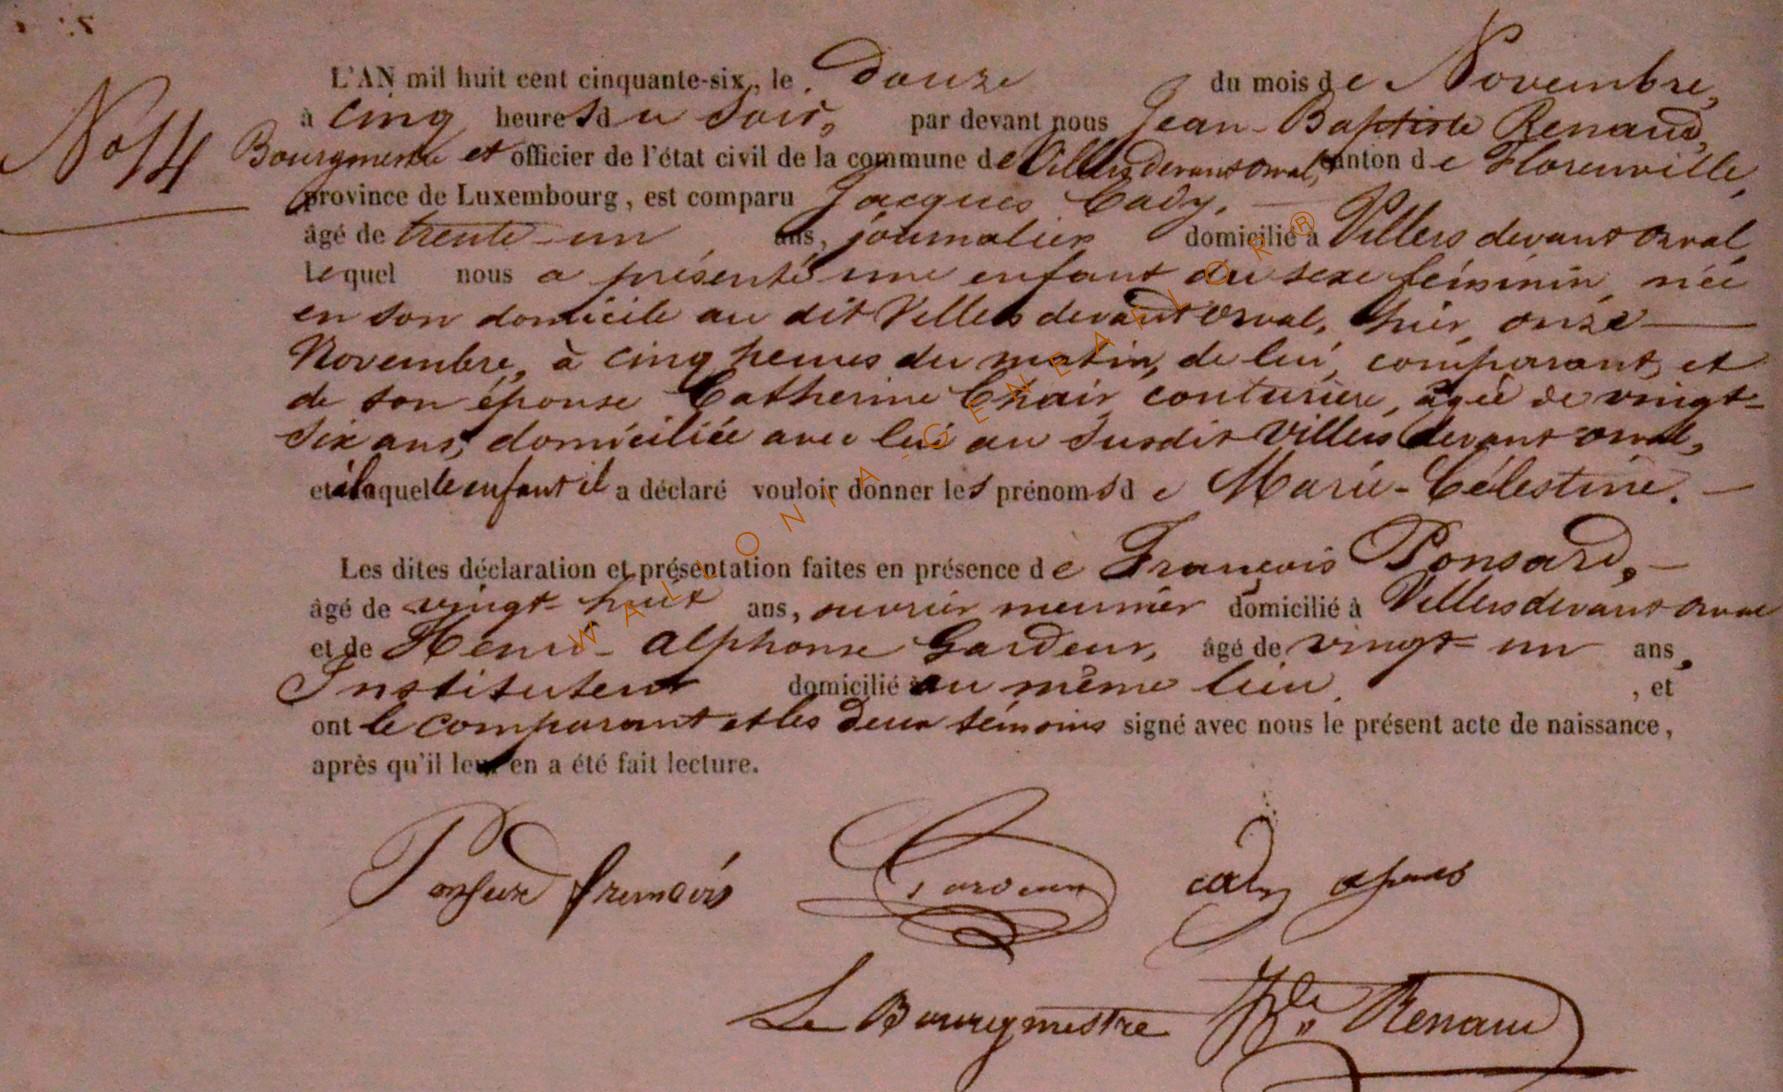 L'AN mil huit cent cinquante-six, le douze du mois de Novembre,
à cinq heures du soir, par devant nous Jean-Baptiste Renaud,
No 14
Bourgmestre et officier de l'état civil de la commune de Villers devant orval, canton de Florenville,
province de Luxembourg, est comparu Jacques Cady,
âgé de trente-un ans, journalier domicilié à Villers devant orval,
lequel nous a présenté une enfant du sexe féminin, née
en son domicile au dit Villers devant orval, hier, onze
Novembre, à cinq heures du matin, de lui, comparant, et
de son épouse Catherine Chair, couturière, âgée de vingt-
six ans, domiciliée avec lui au susdit Villers devant orval,
et à laquelle enfant il a déclaré vouloir donner les prénoms de Marie-Célestine.
Les dites déclaration et présentation faites en présence de François Ponsard,
âgé de vingt-huit ans, ouvrier meunier domicilié à Villers devant orval
et de Henri-Alphonse Gardeur, âgé de vingt-un ans,
Instituteur domicilié au même lieu, et
ont le comparant et les deux témoins signé avec nous le présent acte de naissance,
après qu'il leur en a été fait lecture.
WALLONIA-GENEALOR®
françois Gardeur cady
Le Bourgmestre Renaud